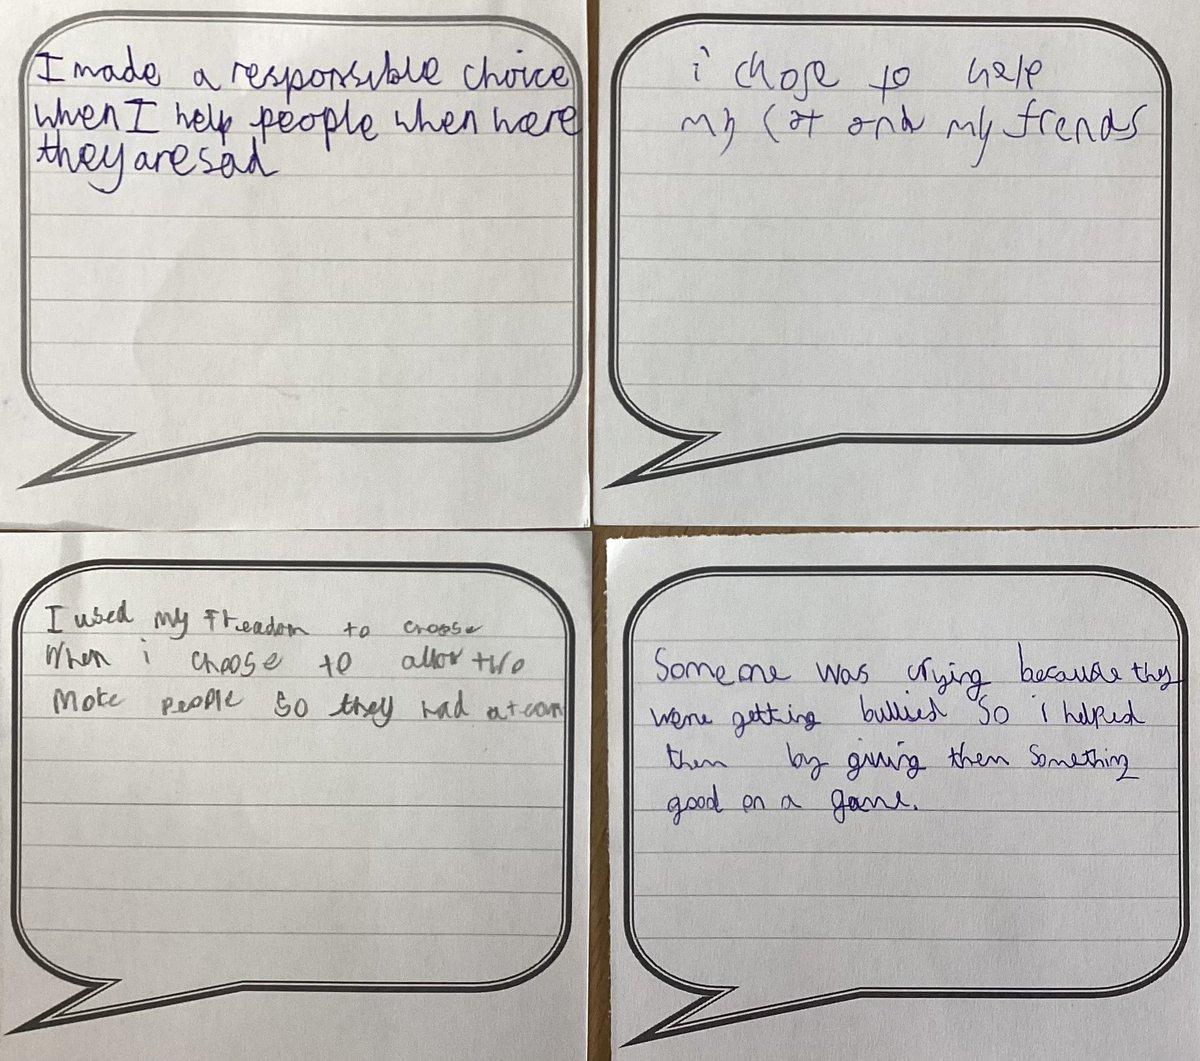 I made a responsible choice
when I help people when were
they are sad
i chose to help
my cat and my frends
I used my freadom to choose
When i choose to allow two
More people so they had a team
Someone was crying because they
were getting bullied so i helped
them by giving them something
good on a game.